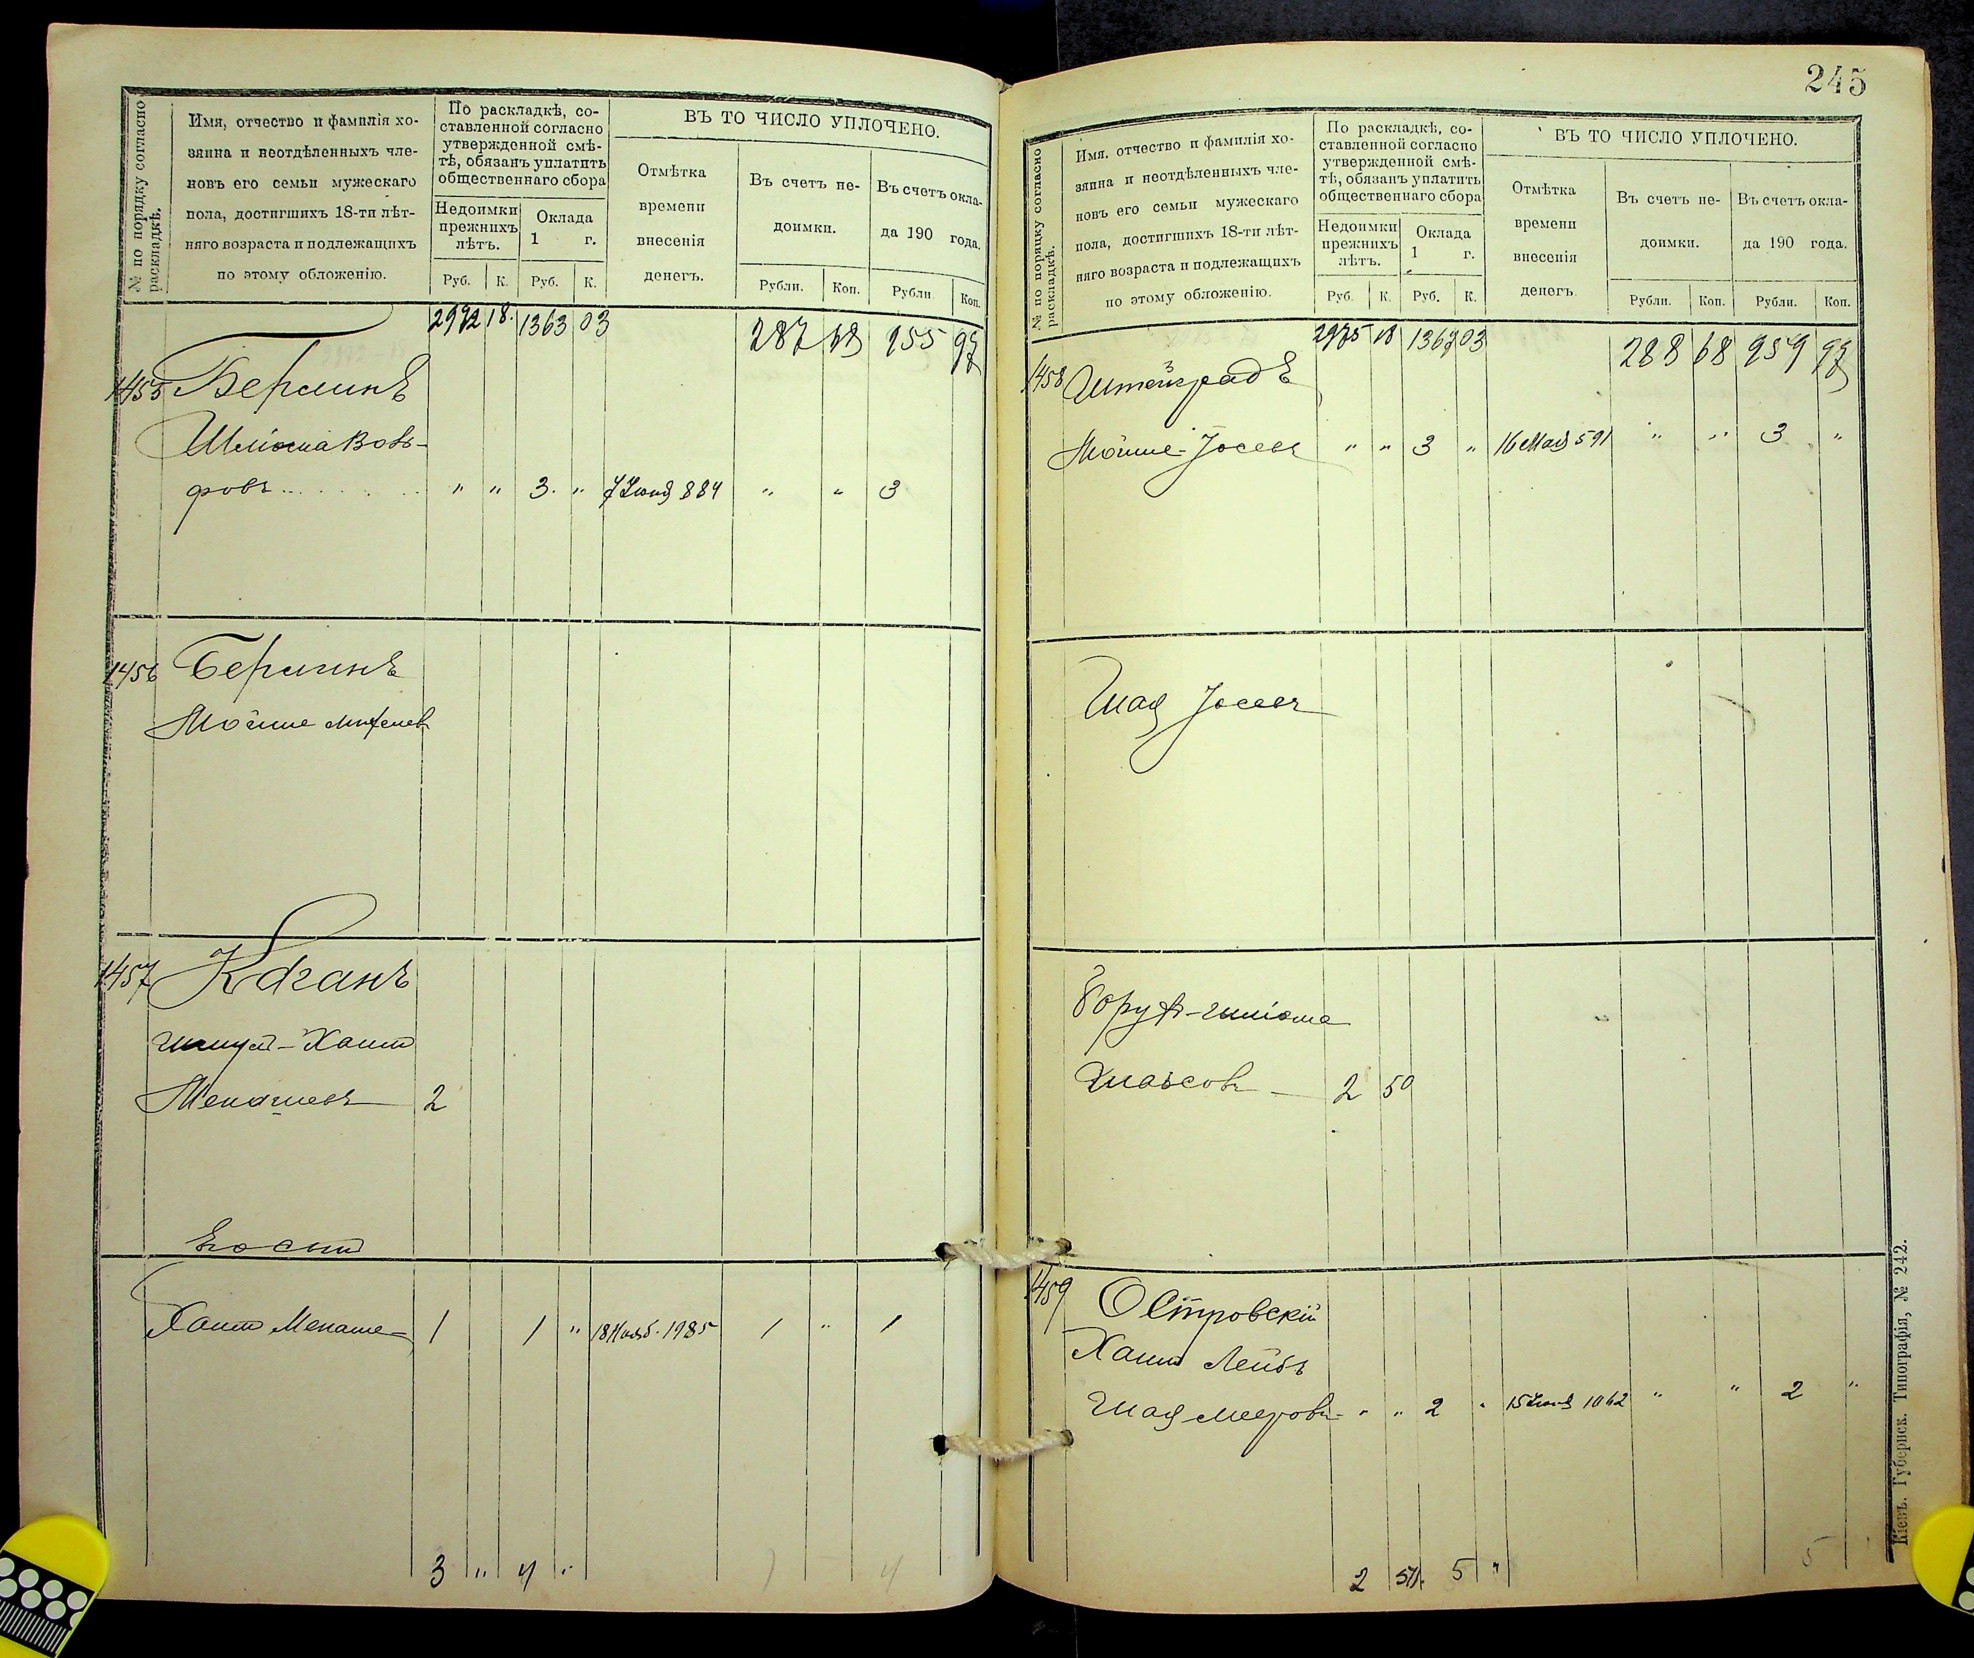 № по порядку согласно раскладкѣ.
Имя, отчество и фамилія хо-
зяина и неотдѣленныхъ чле-
новъ его семьи мужескаго
пола, достигшихъ 18-ти лѣт-
няго возраста и подлежащихъ
по этому обложенію.
По раскладкѣ, со-
ставленной согласно
утвержденной смѣ-
тѣ, обязанъ уплатить
общественнаго сбора
Недоимки
прежнихъ
лѣтъ.
Оклада
1 г.
Руб. К. Руб. К.
ВЪ ТО ЧИСЛО УПЛОЧЕНО.
Отмѣтка
времени
внесенія
денегъ.
Въ счетъ не-
доимки.
Въ счетъ окла-
да 190 года.
Рубли. Коп. Рубли Коп.
2972 18. 1363 03 287 68 955 97
1455 Берлинъ
Шліома Вовь-
фовъ . . . . . " " 3. " 7 Іюня 884 " " 3
1456 Берлинъ
Мойше
1457 Каганъ
Шмул-Хаим
Менашевъ 2
Хаим Менаше- 1 1 " 18 Нояб. 1985 1 " 1
3 " 4 "
1 4
245
№ по порядку согласно раскладкѣ.
Имя, отчество и фамилія хо-
зяина и неотдѣленныхъ чле-
новъ его семьи мужескаго
пола, достигшихъ 18-ти лѣт-
няго возраста и подлежащихъ
по этому обложенію.
По раскладкѣ, со-
ставленной согласно
утвержденной смѣ-
тѣ, обязанъ уплатить
общественнаго сбора
Недоимки
прежнихъ
лѣтъ.
Оклада
1 г.
Руб. К. Руб. К.
ВЪ ТО ЧИСЛО УПЛОЧЕНО.
Отмѣтка
времени
внесенія
денегъ.
Въ счетъ не-
доимки.
Въ счетъ окла-
да 190 года.
Рубли. Коп. Рубли. Коп.
2975 18 1367 03 288 68 959 97
1458 Штейнградъ
Мойше-Іосевъ " " 3 " 16 Мая 591 " " 3 "
Шая Іосевъ
Борух-Шліома
2 50
1459 Островскій
Хаим Лейбъ
Шая Мееровъ - " " 2 " 15 Іюня 1062 " " 2 "
2 50. 5 "
5
Кіевъ. Губернск. Типографія, № 242.